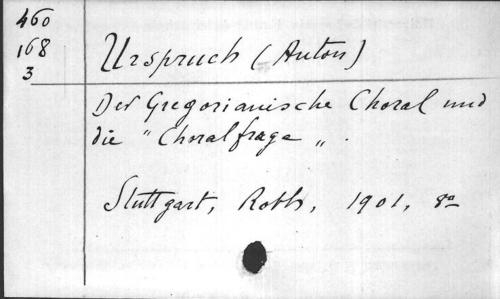 460
168
3
Urspruch (Anton)
Der Gregorianische Choral und
die "Choralfrage".
Stuttgart, Roth, 1901, 8º